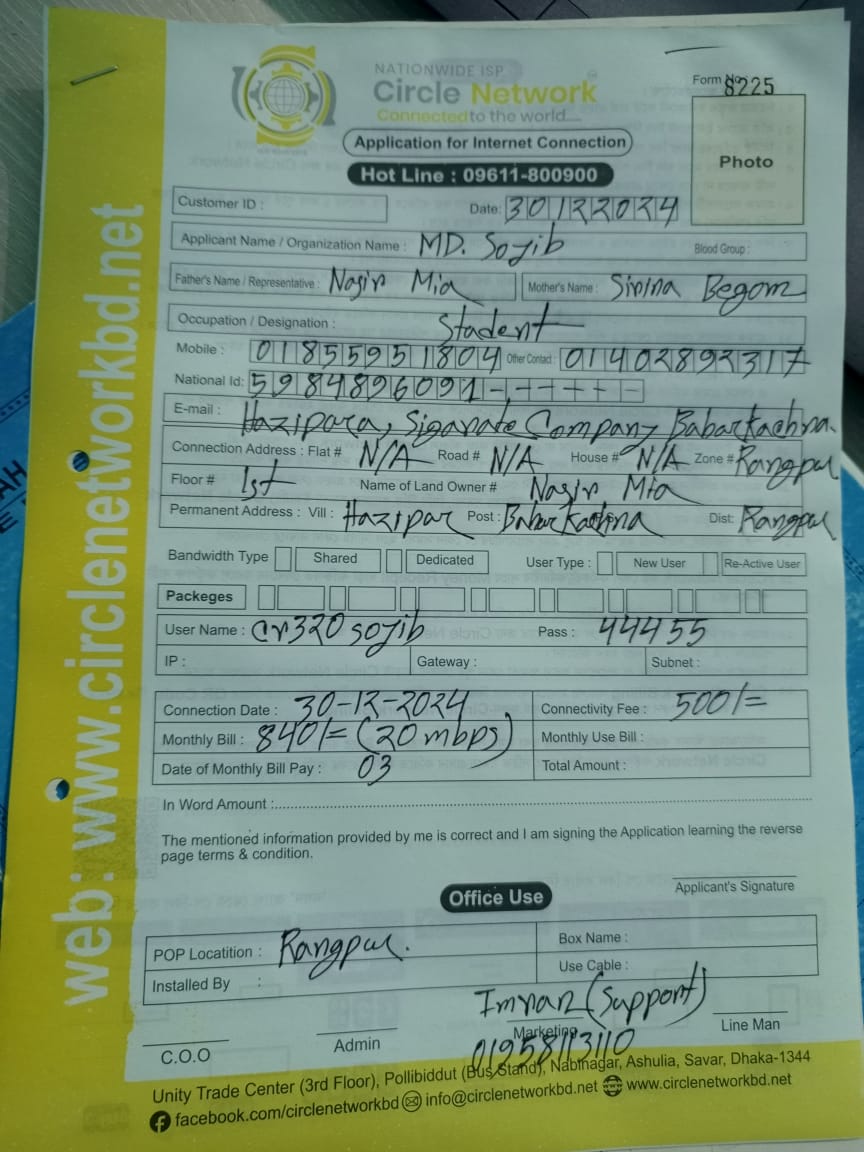 NATIONWIDE ISP
Circle Network
Connected to the world....
Form No 8225
Application for Internet Connection
Photo
Hot Line : 09611-800900
Customer ID :
Date: 30122024
Applicant Name / Organization Name : MD. Sojib Blood Group :
Father's Name / Representative : Nasir Mia Mother's Name : Sirina Begom
Occupation / Designation : Student
Mobile : 01855951804 Other Contact : 01402892317
National Id: 5984896091-+++++-
E-mail : Hazipara, Sigarate Company Babarkachna.
Connection Address : Flat # N/A Road # N/A House # N/A Zone # Rangpur
Floor # 1st Name of Land Owner # Nasir Mia
Permanent Address : Vill : Hazipar Post : Babarkachna Dist: Rangpur
Bandwidth Type Shared Dedicated User Type : New User Re-Active User
Packeges
User Name : cr320sojib Pass : 44455
IP : Gateway : Subnet :
Connection Date : 30-12-2024 Connectivity Fee : 500/=
Monthly Bill : 840/= (20 mbps) Monthly Use Bill :
Date of Monthly Bill Pay : 03 Total Amount :
In Word Amount :
The mentioned information provided by me is correct and I am signing the Application learning the reverse
page terms & condition.
Applicant's Signature
Office Use
POP Locatition : Rangpur. Box Name :
Installed By : Use Cable :
Imran (Support)
C.O.O Admin Marketing Line Man
01958113110
Unity Trade Center (3rd Floor), Pollibiddut (Bus Stand), Nabinagar, Ashulia, Savar, Dhaka-1344
facebook.com/circlenetworkbd info@circlenetworkbd.net www.circlenetworkbd.net
web: www.circlenetworkbd.net